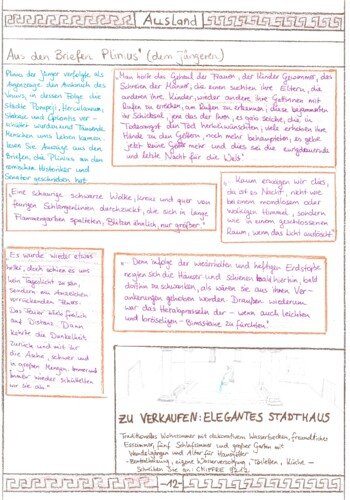 Ausland
Aus den Briefen Plinius' (dem Jüngeren)
Plinius der Jünger verfolgte als
Augenzeuge den Ausbruch des
Vesuvs, in dessen Folge die
Städte Pompeji, Herculaneum,
Stabiae und Oplontis ver-
schüttet wurden und Tausende
Menschen ums Leben kamen.
Lesen Sie Auszüge aus den
Briefen, die Plinius an den
römischen Historiker und
Senator geschrieben hat.
„Man hörte das Geheul der Frauen, der Kinder Gewimmer, das
Schreien der Männer, die einen suchten ihre Eltern, die
anderen ihre Kinder, wieder andere ihre Gattinnen mit
Rufen zu erreichen, am Rufen zu erkennen; diese bejammerten
ihr Schicksal, jene das der Ihren, es gab welche, die in
Todesangst den Tod herbeiwünschten, viele erhoben ihre
Hände zu den Göttern, noch mehr behaupteten, es gebe
jetzt keine Götter mehr und dies sei die ewigdauernde
und letzte Nacht für die Welt"
„Eine schaurige schwarze Wolke, kreuz und quer von
feurigen Schlangenlinien durchzuckt, die sich in lange
Flammengarben spalteten, Blitzen ähnlich, nur größer"
„Kaum erwägen wir dies,
da ist es Nacht, nicht wie
bei einem mondlosen oder
wolkigen Himmel, sondern
wie in einem geschlossenen
Raum, wenn das Licht auslöscht"
Es wurde wieder etwas
heller, doch schien es uns
kein Tageslicht zu sein,
sondern ein Anzeichen
vorrückenden Feuers.
Das Feuer blieb freilich
auf Distanz. Dann
kehrte die Dunkelheit
zurück und mit ihr
die Asche, schwer und
in großen Mengen. Immer und
immer wieder schüttelten
wir sie ab."
„Denn infolge der wiederholten und heftigen Erdstöße
neigen sich die Häuser und schienen bald hierhin, bald
dorthin zu schwanken, als wären sie aus ihren Ver-
ankerungen gehoben worden. Draußen wiederum
war das Herabprasseln der - wenn auch leichten
und bröseligen - Bimssteine zu fürchten."
ZU VERKAUFEN: ELEGANTES STADTHAUS
Traditionelles Wohnzimmer mit dekorativem Wasserbecken, freundliches
Esszimmer, fünf Schlafzimmer und großer Garten mit
Wandelgängen und Altar für Hausgötter
- Zentralheizung, eigene Wasserversorgung, Toiletten, Küche -
Schreiben Sie an: CHIFFRE
-12-